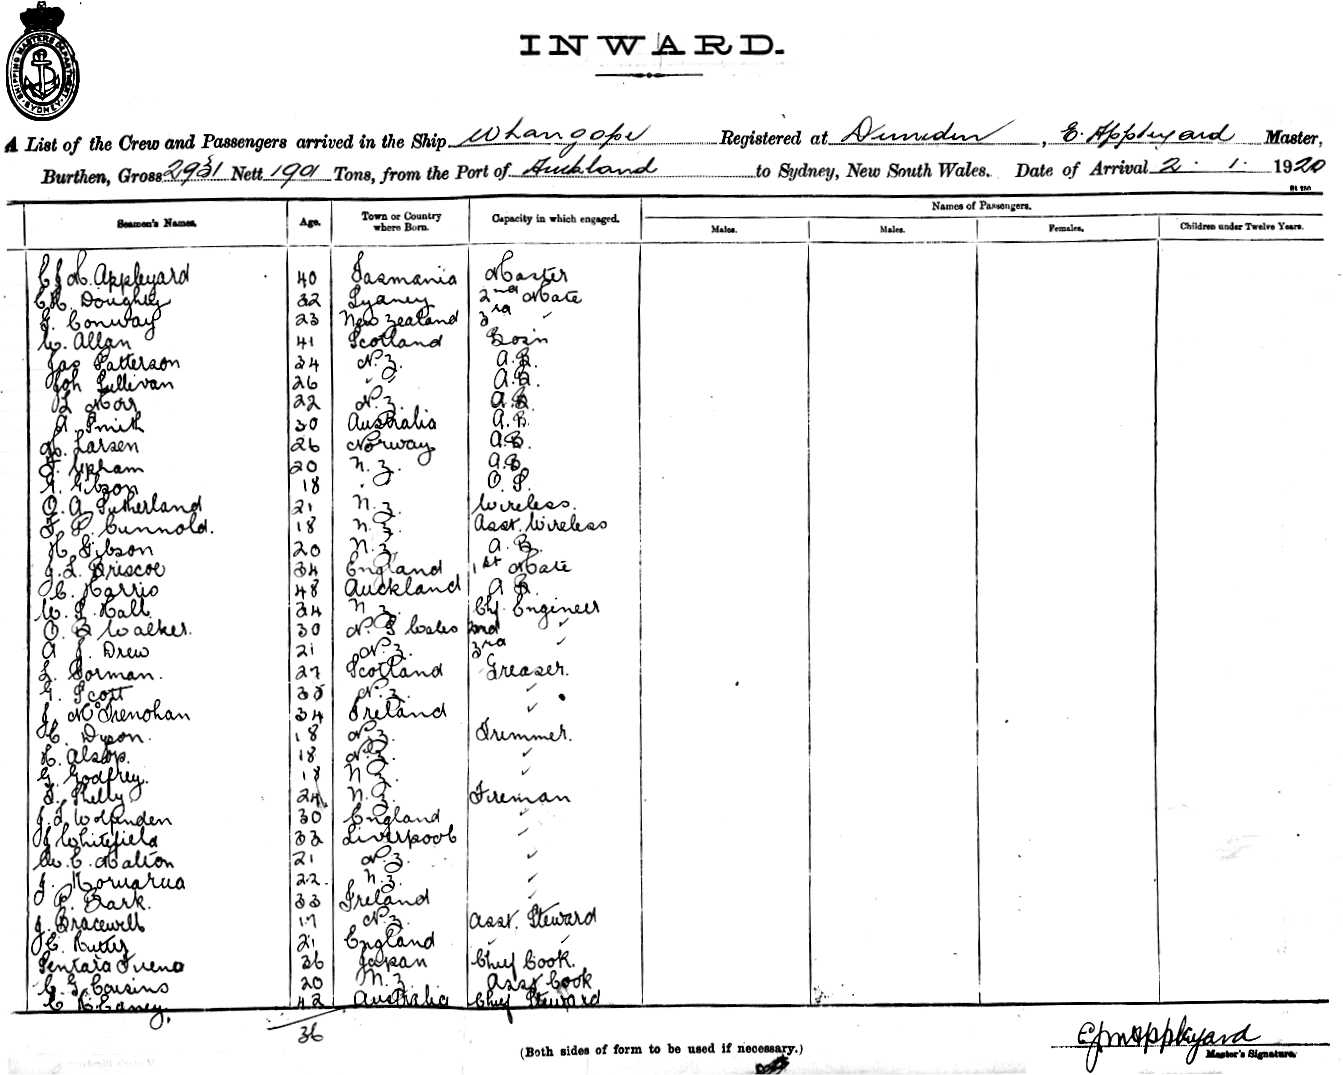 SHIPPING MASTERS DEPARTMENT SYDNEY
INWARD.
A List of the Crew and Passengers arrived in the Ship Whangape Registered at Dunedin, E. Appleyard Master,
Burthen, Gross 2931 Nett 1901 Tons, from the Port of Auckland to Sydney, New South Wales. Date of Arrival 2. 1. 1920
Seamen's Names. Age. Town or Country where Born. Capacity in which engaged. Names of Passengers.
Males. Males. Females. Children under Twelve Years.
E J M Appleyard 40 Tasmania Master
Doughty 32 Sydney 2nd Mate
J. Conway 23 New Zealand 3rd "
W. Allan 41 Scotland Bosin
Jas Patterson 34 N.Z. A.B.
Joh Sullivan 26 " A.B.
Moir 22 N.Z. A.B.
A Smith 30 Australia A.B.
Larsen 26 Norway A.B.
Upham 20 N.Z. A.B.
G. Gibson 18 " O.S.
O. A Sutherland 21 N.Z. Wireless.
F. P. Cunnold. 18 N.Z. Asst. Wireless
H. Gibson 20 N.Z. A.B.
J. L. Briscoe 34 England 1st Mate
C. Harris 48 Auckland A B.
W. S. Hall 34 N.Z. Chf Engineer
O. B Walker. 30 N. S Wales 2nd "
A J. Drew 21 N.Z. 3rd "
L. Gorman. 27 Scotland Greaser.
G. Scott 33 N.Z. "
J. 34 Ireland "
C. Dyson. 18 N.Z. Trimmer.
H. Alsop. 18 N.Z. "
G. Godfrey. 18 N.Z. "
Shelly 24 N.Z. Fireman
J. J. Wolfenden 30 England "
J Whitefield 33 Liverpool "
W. C. Malton 21 N.Z. "
J. Horuarua 22. N.Z. "
P. Bark. 33 Ireland "
J. Bracewell 17 N.Z. Asst. Steward
C. Rutty 21 England " "
Sentaro 36 Japan Chief Cook.
C. G. Cousins 20 N.Z Asst Cook
42 Australia Chief Steward
36
(Both sides of form to be used if necessary.)
EJMAppleyard
Master's Signature.